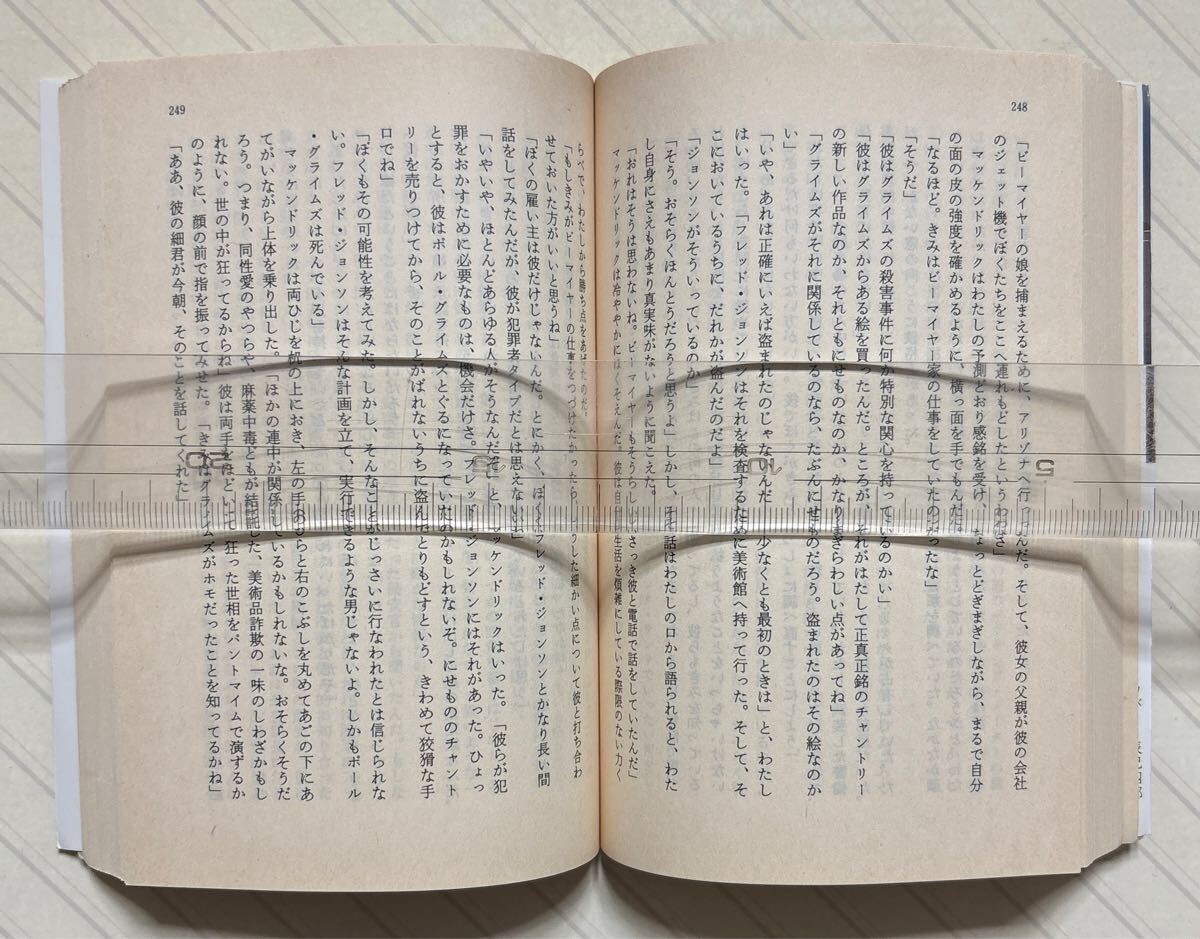 248
「ビーマイヤーの娘を捕まえるために、アリゾナへ行ったんだ。そして、彼女の父親が彼の会社
のジェット機でぼくたちをここへ連れもどしたというわけさ」
マッケンドリックはわたしの予測どおり感銘を受け、ちょっとどぎまぎしながら、まるで自分
の面の皮の強度を確かめるように、横っ面を手でもんだ。
「なるほど。きみはビーマイヤー家の仕事をしていたのだったな」
「そうだ」
「彼はグライムズの殺害事件に何か特別な関心を持っているのかい」
「彼はグライムズからある絵を買ったんだ。ところが、それがはたして正真正銘のチャントリー
の新しい作品なのか、それともにせものなのか、かなりまぎらわしい点があってね」
「グライムズがそれに関係しているのなら、たぶんにせものだろう。盗まれたのはその絵なのか
い」
「いや、あれは正確にいえば盗まれたのじゃないんだ 少なくとも最初のときは」と、わたし
はいった。「フレッド・ジョンソンはそれを検査するために美術館へ持って行った。そして、そ
こにおいているうちに、だれかが盗んだのだよ」
「ジョンソンがそういっているのか」
「そう。おそらくほんとうだろうと思うよ」しかし、その話はわたしの口から語られると、わた
し自身にさえもあまり真実味がないように聞こえた。
「おれはそうは思わないね。ビーマイヤーもそうらしい。さっき彼と電話で話をしていたんだ」
マッケンドリックは冷ややかにほくそえんだ。彼は自分の生活を煩雑にしている際限のない力く
249
らべで、わたしから勝ち点をあげたのだ。
「もしきみがビーマイヤーの仕事をつづけたかったら、こうした細かい点について彼と打ち合わ
せておいた方がいいと思うね」
「ぼくの雇い主は彼だけじゃないんだ。とにかく、ぼくはフレッド・ジョンソンとかなり長い間
話をしてみたんだが、彼が犯罪者タイプだとは思えないよ」
「いやいや、ほとんどあらゆる人がそうなんだぞ」と、マッケンドリックはいった。「彼らが犯
罪をおかすために必要なものは、機会だけさ。フレッド・ジョンソンにはそれがあった。ひょっ
とすると、彼はポール・グライムズとぐるになっていたのかもしれないぞ。にせもののチャント
リーを売りつけてから、そのことがばれないうちに盗んでとりもどすという、きわめて狡猾な手
口でね」
「ぼくもその可能性を考えてみた。しかし、そんなことがじっさいに行なわれたとは信じられな
い。フレッド・ジョンソンはそんな計画を立て、実行できるような男じゃないよ。しかもポール
・グライムズは死んでいる」
マッケンドリックは両ひじを机の上におき、左の手のひらと右のこぶしを丸めてあごの下にあ
てがいながら上体を乗り出した。「ほかの連中が関係しているかもしれないな。おそらくそうだ
ろう。つまり、同性愛のやつらや、麻薬中毒どもが結託した、美術品詐欺の一味のしわざかもし
れない。世の中が狂ってるからね」彼は両手をほどいて、狂った世相をパントマイムで演ずるか
のように、顔の前で指を振ってみせた。「きみはグライムズがホモだったことを知ってるかね」
「ああ、彼の細君が今朝、そのことを話してくれた」
5
10